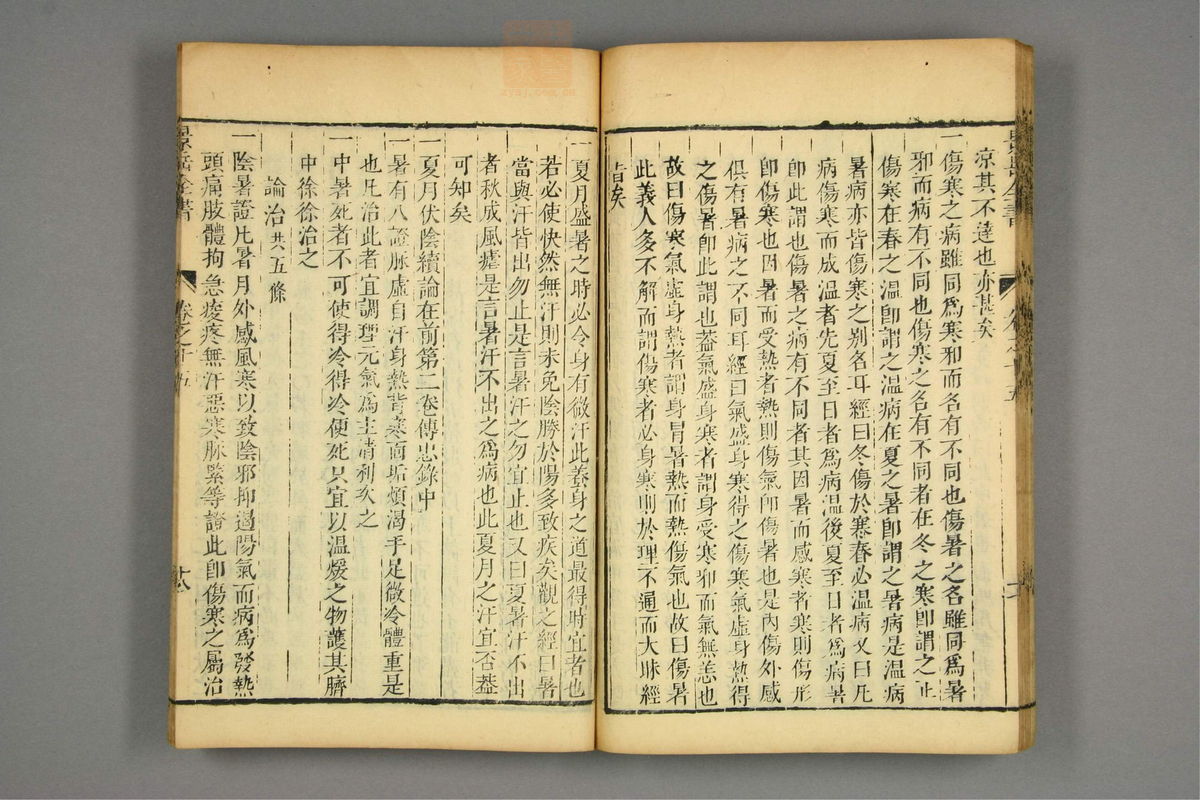 涼其不達也亦甚矣
一傷寒之病雖同爲寒邪而名有不同也傷暑之名雖同爲暑
邪而病有不同也傷寒之名有不同者在冬之寒卽謂之正
傷寒在春之温卽謂之温病在夏之暑卽謂之暑病是温病
暑病亦皆傷寒之别名耳經曰冬傷於寒春必温病又曰凡
病傷寒而成温者先夏至日者爲病温後夏至日者爲病暑
卽此謂也傷暑之病有不同者其因暑而感寒者寒則傷形
卽傷寒也因暑而受熱者熱則傷氣卽傷暑也是内傷外感
俱有暑病之不同耳經曰氣盛身寒得之傷寒氣虛身熱得
之傷暑卽此謂也葢氣盛身寒者謂身受寒邪而氣無恙也
故曰傷寒氣虛身熱者謂身冒暑熱而熱傷氣也故曰傷暑
此義人多不解而謂傷寒者必身寒則於理不通而大昧經
旨矣
景岳全書
卷之十五
一夏月盛暑之時必令身有微汗此養身之道最得時宜者也
若必使快然無汗則未免陰勝於陽多致疾矣觀之經曰暑
當與汗皆出勿止是言暑汗之勿宜止也又曰夏暑汗不出
者秋成風瘧是言暑汗不出之爲病也此夏月之汗宜否葢
可知矣
一夏月伏陰續論在前第二卷傳忠錄中
一暑有八證脉虛自汗身熱背寒面垢煩渴手足微冷體重是
也凡治此者宜調理元氣爲主清利次之
一中暑死者不可使得冷得冷便死只宜以温煖之物護其臍
中徐徐治之
論治共五條
一陰暑證凡暑月外感風寒以致陰邪抑遏陽氣而病爲發熱
頭痛肢體拘急痠疼無汗惡寒脉緊等證此卽傷寒之屬治
景岳全書
卷之十五
十八